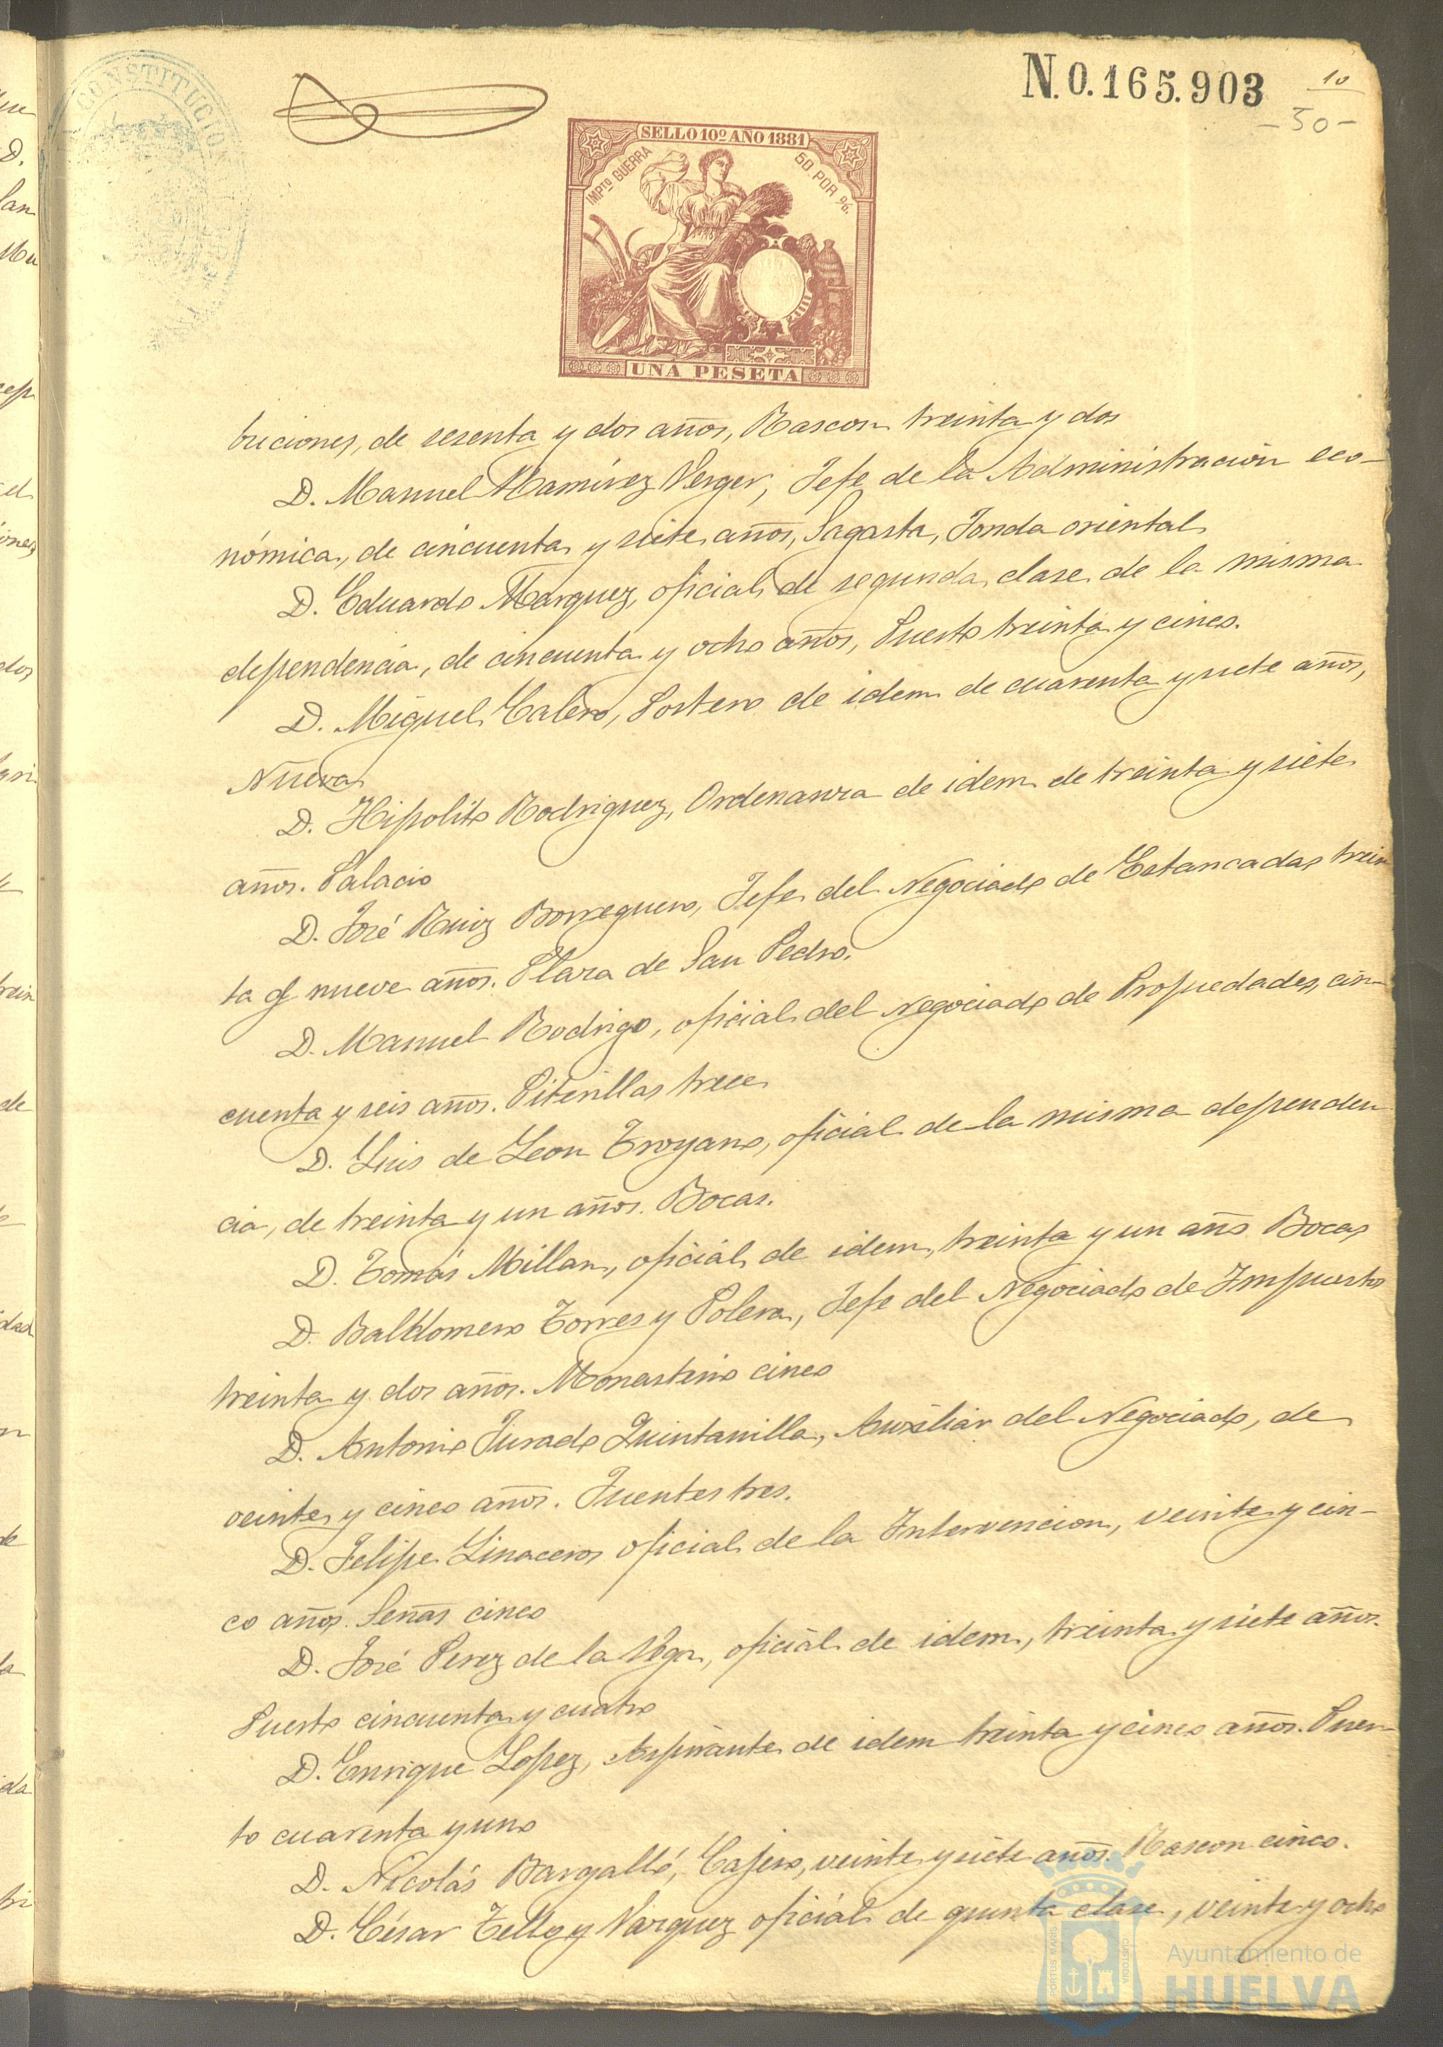 CONSTITUCION
N.0.165.903
10
-30-
SELLO 10º AÑO 1881
IMPTO GUERRA
50 POR %.
UNA PESETA
buciones, de sesenta y dos años, Rascon treinta y dos
D. Manuel Ramírez Verger, Jefe de la Administración eco-
nómica, de cincuenta y siete años, Sagasta, Fonda oriental
D. Eduardo Marquez, oficial de segunda clase de la misma
dependencia, de cincuenta y ocho años, Puerto treinta y cinco.
D. Miguel Calero, Portero de idem de cuarenta y siete años,
Nueva
D. Hipolito Rodriguez, Ordenanza de idem de treinta y siete
años. Palacio
D. José Ruiz Borreguero, Jefe del Negociado de Estancadas trein
ta y nueve años. Plaza de San Pedro.
D. Manuel Rodrigo, oficial del Negociado de Propiedades, cin-
cuenta y seis años. Piterillas trece
D. Luis de Leon Troyano, oficial de la misma dependen
cia, de treinta y un años. Bocas.
D. Tomás Millan, oficial de idem, treinta y un año Bocas
D. Baldomero Torres y Polera, Jefe del Negociado de Impuestos
treinta y dos años. Monasterio cinco
D. Antonio Jurado Quintanilla, Auxiliar del Negociado, de
veinte y cinco años. Fuentes tres.
D. Felipe Linaceros oficial de la Intervencion, veinte y cin-
co años. Señas cinco
D. José Perez de la Vega, oficial de idem, treinta y siete años.
Puerto cincuenta y cuatro
D. Enrique Lopez, Aspirante de idem treinta y cinco años. Puer-
to cuarenta y uno
D. Nicolás Bargalló, Cajero, veinte y siete años. Rascon cinco.
D. César Tello y Vazquez oficial de quinta clase, veinte y ocho
PORTUS MARIS
CUSTODIA
Ayuntamiento de
HUELVA